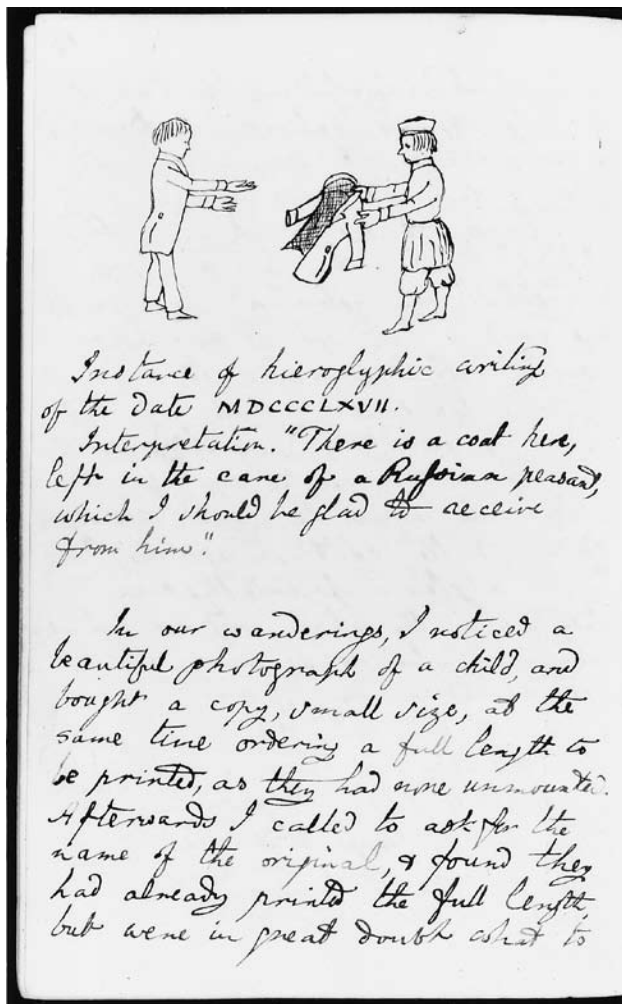 Instance of hieroglyphic writing
of the date MDCCCLXVII.
Interpretation. "There is a coat here,
left in the care of a Russian peasant,
which I should be glad to receive
from him".
In our wanderings, I noticed a
beautiful photograph of a child, and
bought a copy, small size, at the
same time ordering a full length to
be printed, as they had none unmounted.
Afterwards I called to ask for the
name of the original, & found they
had already printed the full length,
but were in great doubt what to